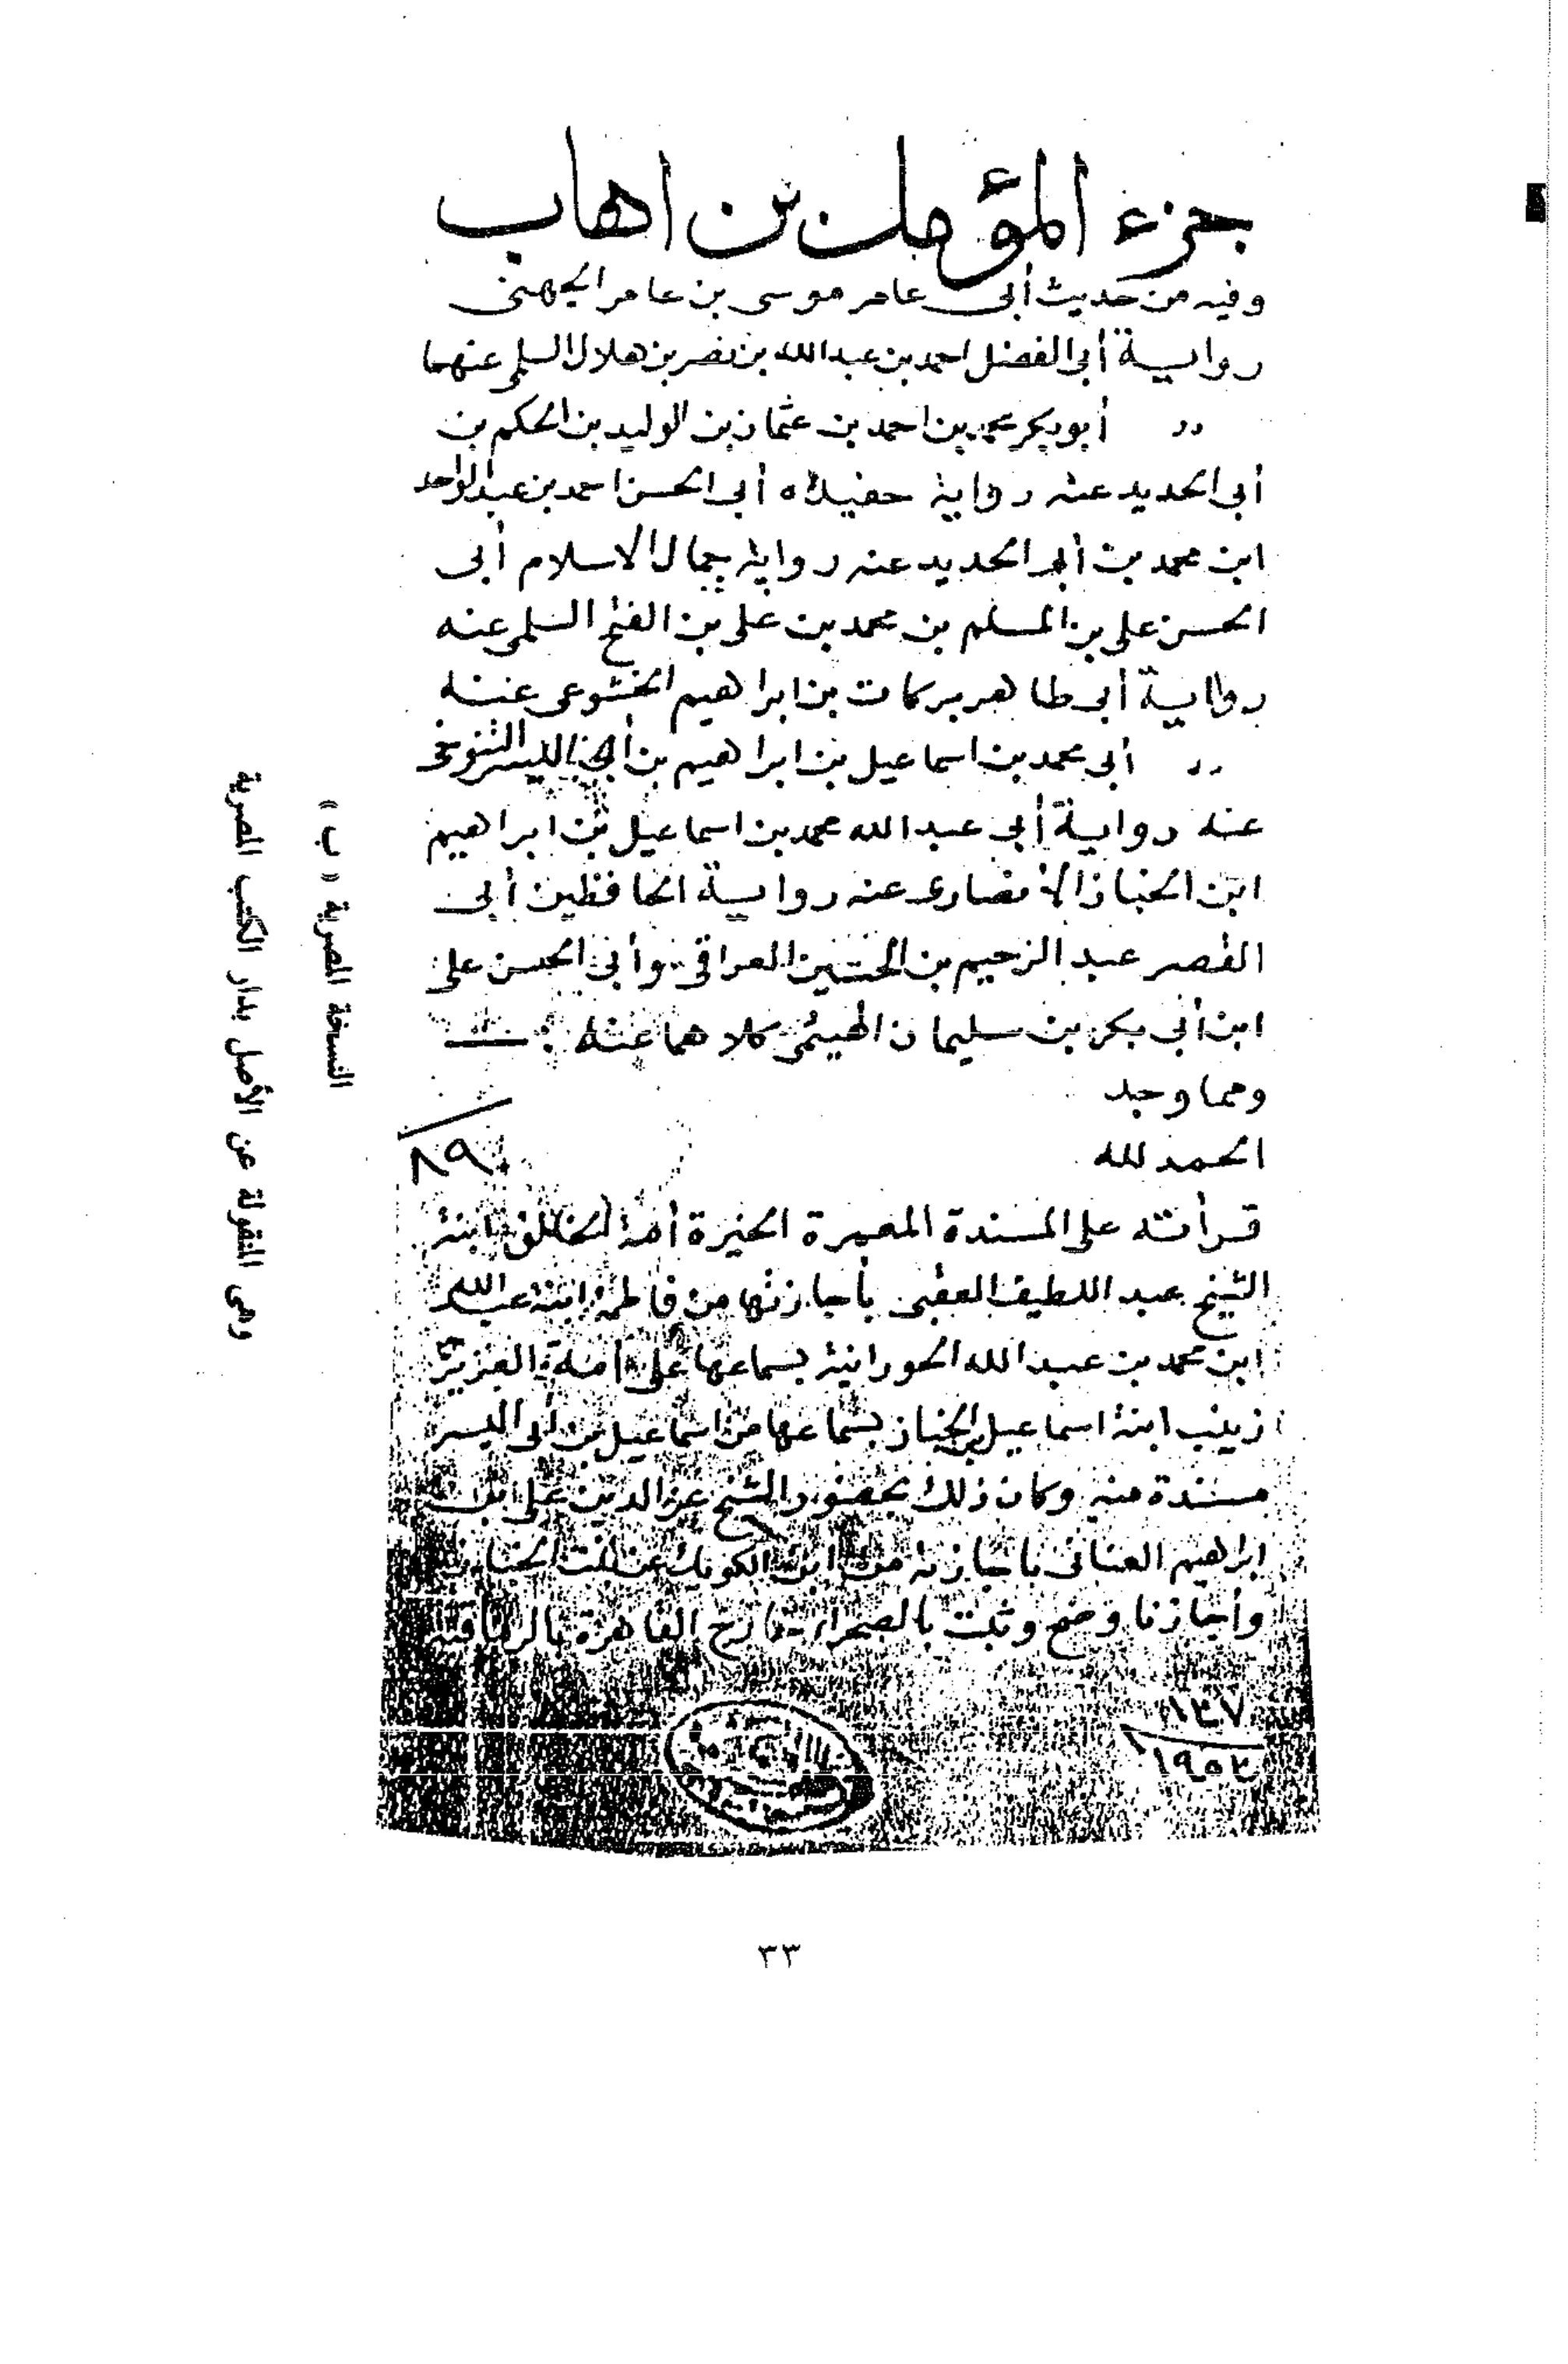 جزء المؤمل بن اهاب
وفيه من حديث أبى عامر موسى بن عامر الجهنى
رواية أبى الفضل احمد بن عبد الله بن نصر بن هلال السلمى عنهما
״ أبو بكر محمد بن احمد بن عثمان بن الوليد بن الحكم بن
أبى الحديد عنه رواية حفيده أبى الحسن احمد بن عبد الواحد
ابن محمد بن أبى الحديد عنه رواية جمال الاسلام أبى
الحسن على بن المسلم بن محمد بن على بن الفتح السلمى عنه
رواية أبى طاهر بركات بن ابراهيم الخشوعى عنه
״ أبى محمد بن اسماعيل بن ابراهيم بن أبى اليسر التنوخى
عنه رواية أبى عبد الله محمد بن اسماعيل بن ابراهيم
ابن الخباز الانصارى عنه رواية الحافظين أبى
الفصر عبد الرحيم بن الحسين العراقى وأبى الحسن على
ابن أبى بكر بن سليمان الهيثمى كلاهما عنه :
ومما وجد
الحمد لله
٨٩
قرأته على المسندة المعمرة الخيرة أمة الخالق ابنة
الشيخ عبد اللطيف العقبى بأجازتها من فاطمة ابنة عبد الله
ابن محمد بن عبد الله الحورانية بسماعها على أمة العزيز
زينب ابنة اسماعيل بن الخباز بسماعها من اسماعيل بن أبى اليسر
مسندة منه وكان ذلك بحضور الشيخ عز الدين على بن
ابراهيم العنانى باجازته من ابن الكويك عن بنت الخباز
وأجازنا وصح وثبت بالصحراء خارج القاهرة
١٣٧
١٩٥٢
النسخة المصرية « ب »
وهى المنقولة عن الأصل بدار الكتب المصرية
٣٣